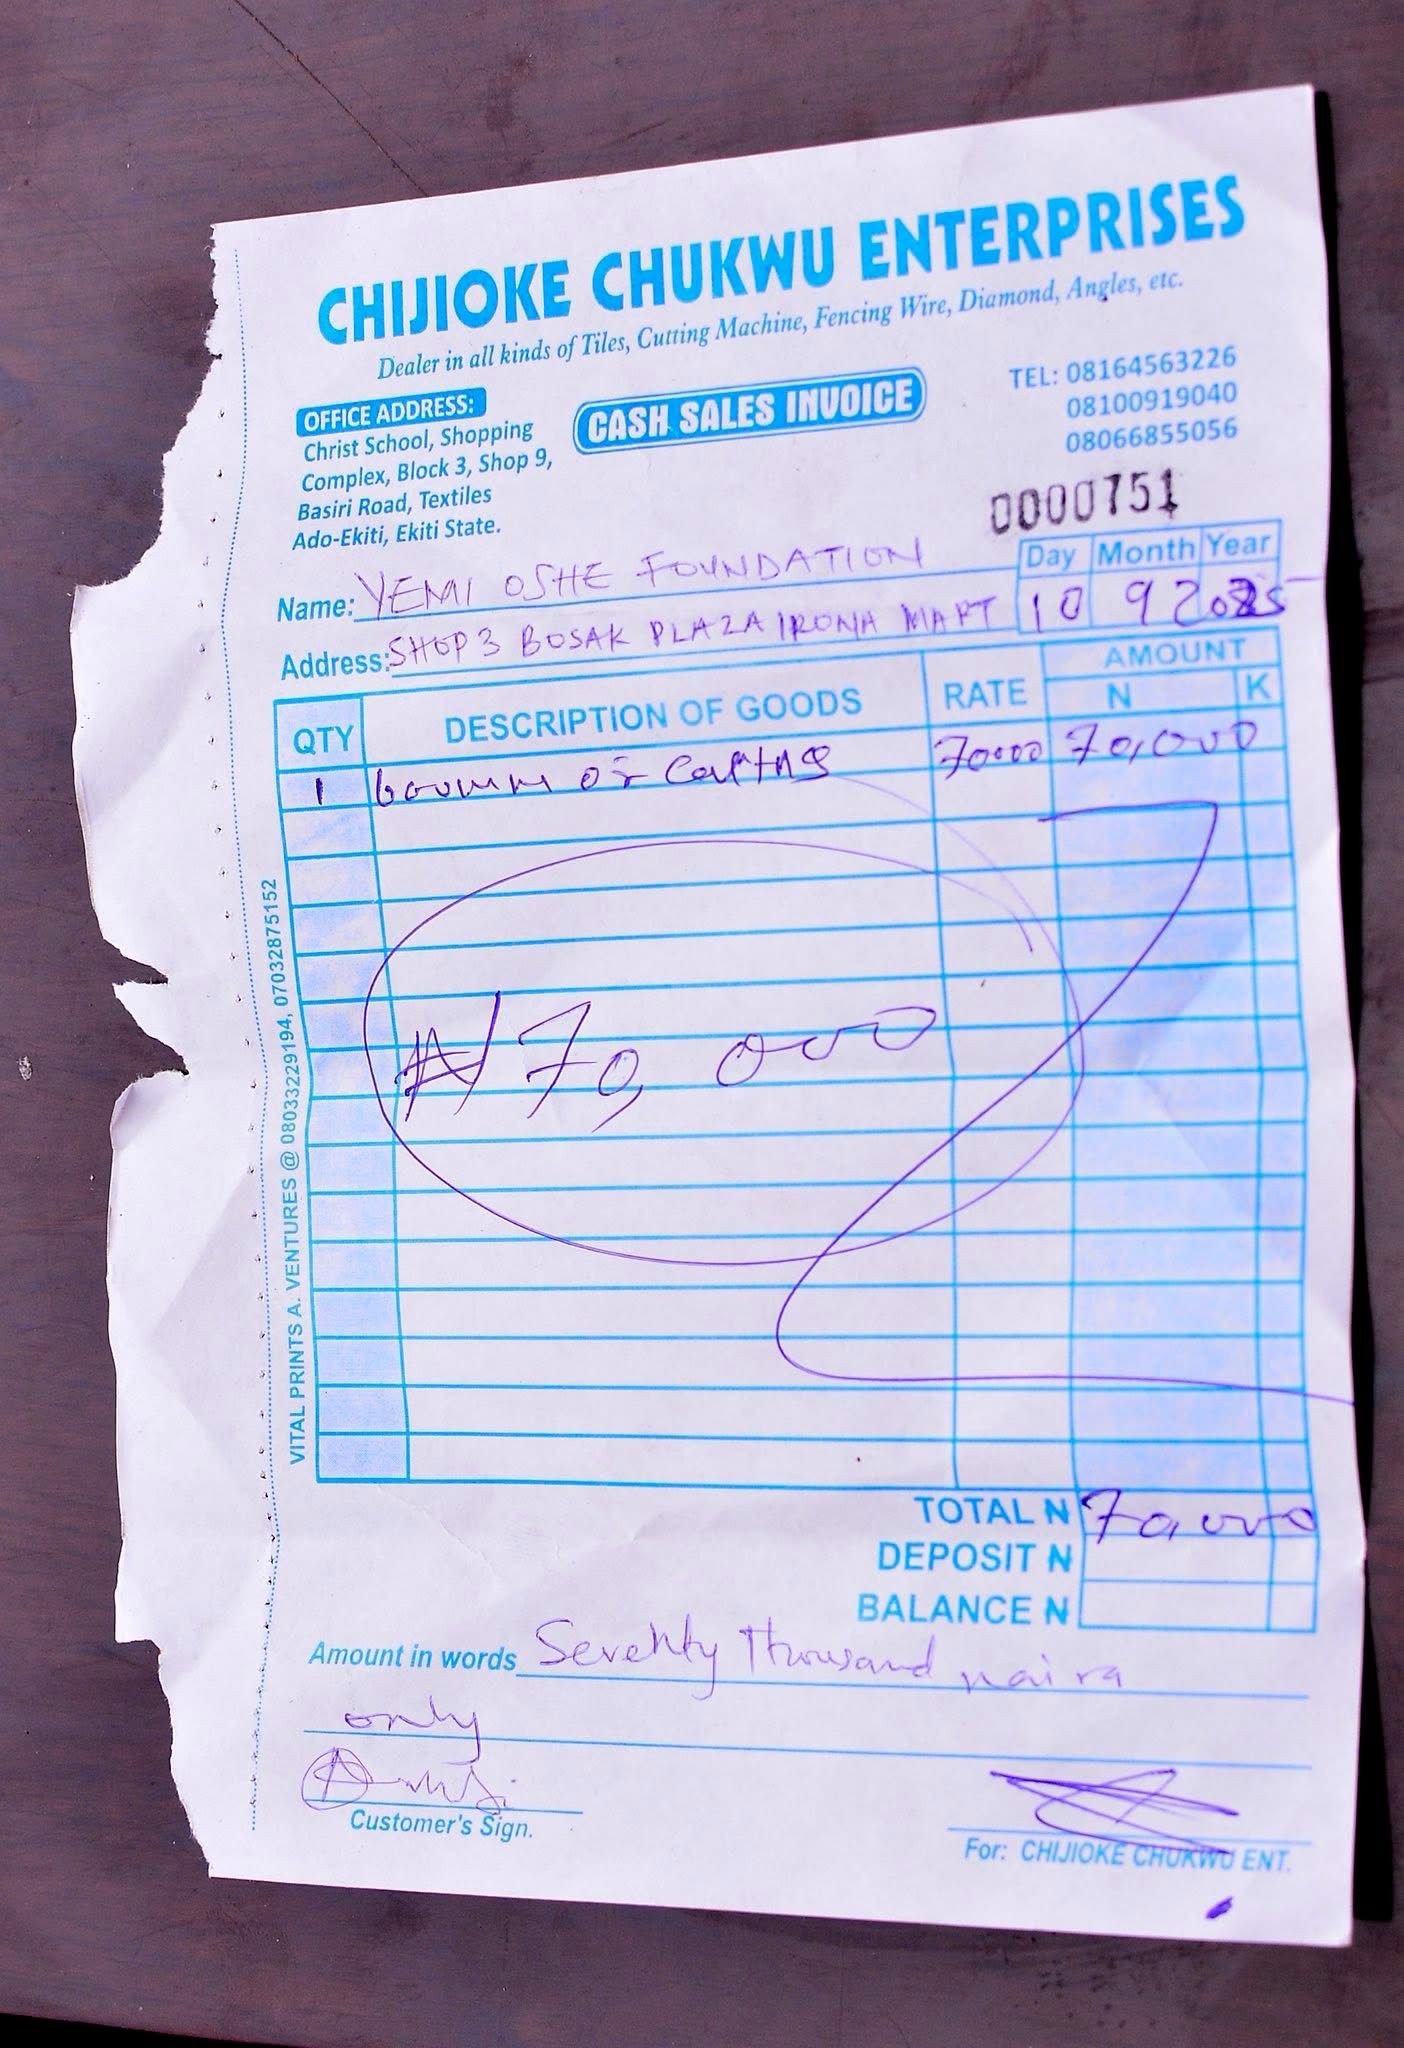 CHIJIOKE CHUKWU ENTERPRISES
Dealer in all kinds of Tiles, Cutting Machine, Fencing Wire, Diamond, Angles, etc.
OFFICE ADDRESS:
Christ School, Shopping
Complex, Block 3, Shop 9,
Basiri Road, Textiles
Ado-Ekiti, Ekiti State.
CASH SALES INVOICE
TEL: 08164563226
08100919040
08066855056
0000751
Day Month Year
10 9 2025
Name: YEMI OSHE FOUNDATION
Address: SHOP 3 BOSAK PLAZA IRONA
QTY DESCRIPTION OF GOODS RATE AMOUNT
N K
1 70000 70,000
₦70,000
TOTAL ₦ 70,000
DEPOSIT ₦
BALANCE ₦
Amount in words Seventy Thousand naira
only
Customer's Sign.
For: CHIJIOKE CHUKWU ENT.
VITAL PRINTS A. VENTURES @ 08033229194, 07032875152